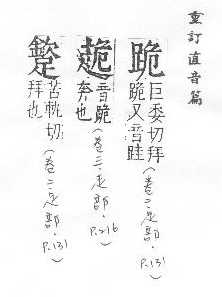 重訂直音篇
跪
巨委切拜
跪又音跬
(卷二足部.P.131)
音跪
奔也
(卷三.走部.P.216)
苦軌切
拜也
(卷二足部.P.131)